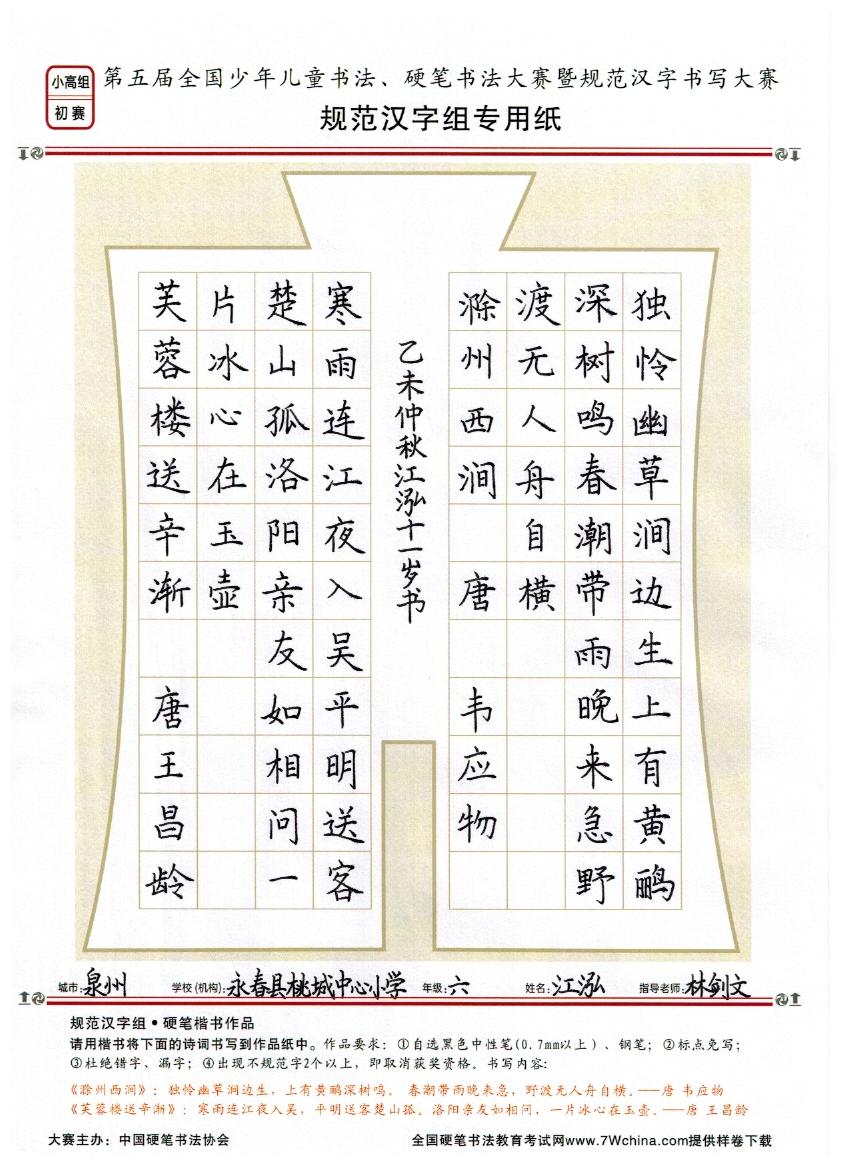 小高组
初赛
第五届全国少年儿童书法、硬笔书法大赛暨规范汉字书写大赛
规范汉字组专用纸
独怜幽草涧边生上有黄鹂
深树鸣春潮带雨晚来急野
渡无人舟自横
滁州西涧 唐 韦应物
乙未仲秋江泓十一岁书
寒雨连江夜入吴平明送客
楚山孤洛阳亲友如相问一
片冰心在玉壶
芙蓉楼送辛渐 唐王昌龄
城市:泉州 学校(机构):永春县桃城中心小学 年级:六 姓名:江泓 指导老师:林剑文
规范汉字组•硬笔楷书作品
请用楷书将下面的诗词书写到作品纸中。作品要求：①自选黑色中性笔(0.7mm以上)、钢笔；②标点免写；
③杜绝错字、漏字；④出现不规范字2个以上，即取消获奖资格。书写内容：
《滁州西涧》：独怜幽草涧边生，上有黄鹂深树鸣。 春潮带雨晚来急，野渡无人舟自横。——唐 韦应物
《芙蓉楼送辛渐》：寒雨连江夜入吴，平明送客楚山孤。洛阳亲友如相问，一片冰心在玉壶。——唐 王昌龄
大赛主办：中国硬笔书法协会 全国硬笔书法教育考试网www.7Wchina.com提供样卷下载